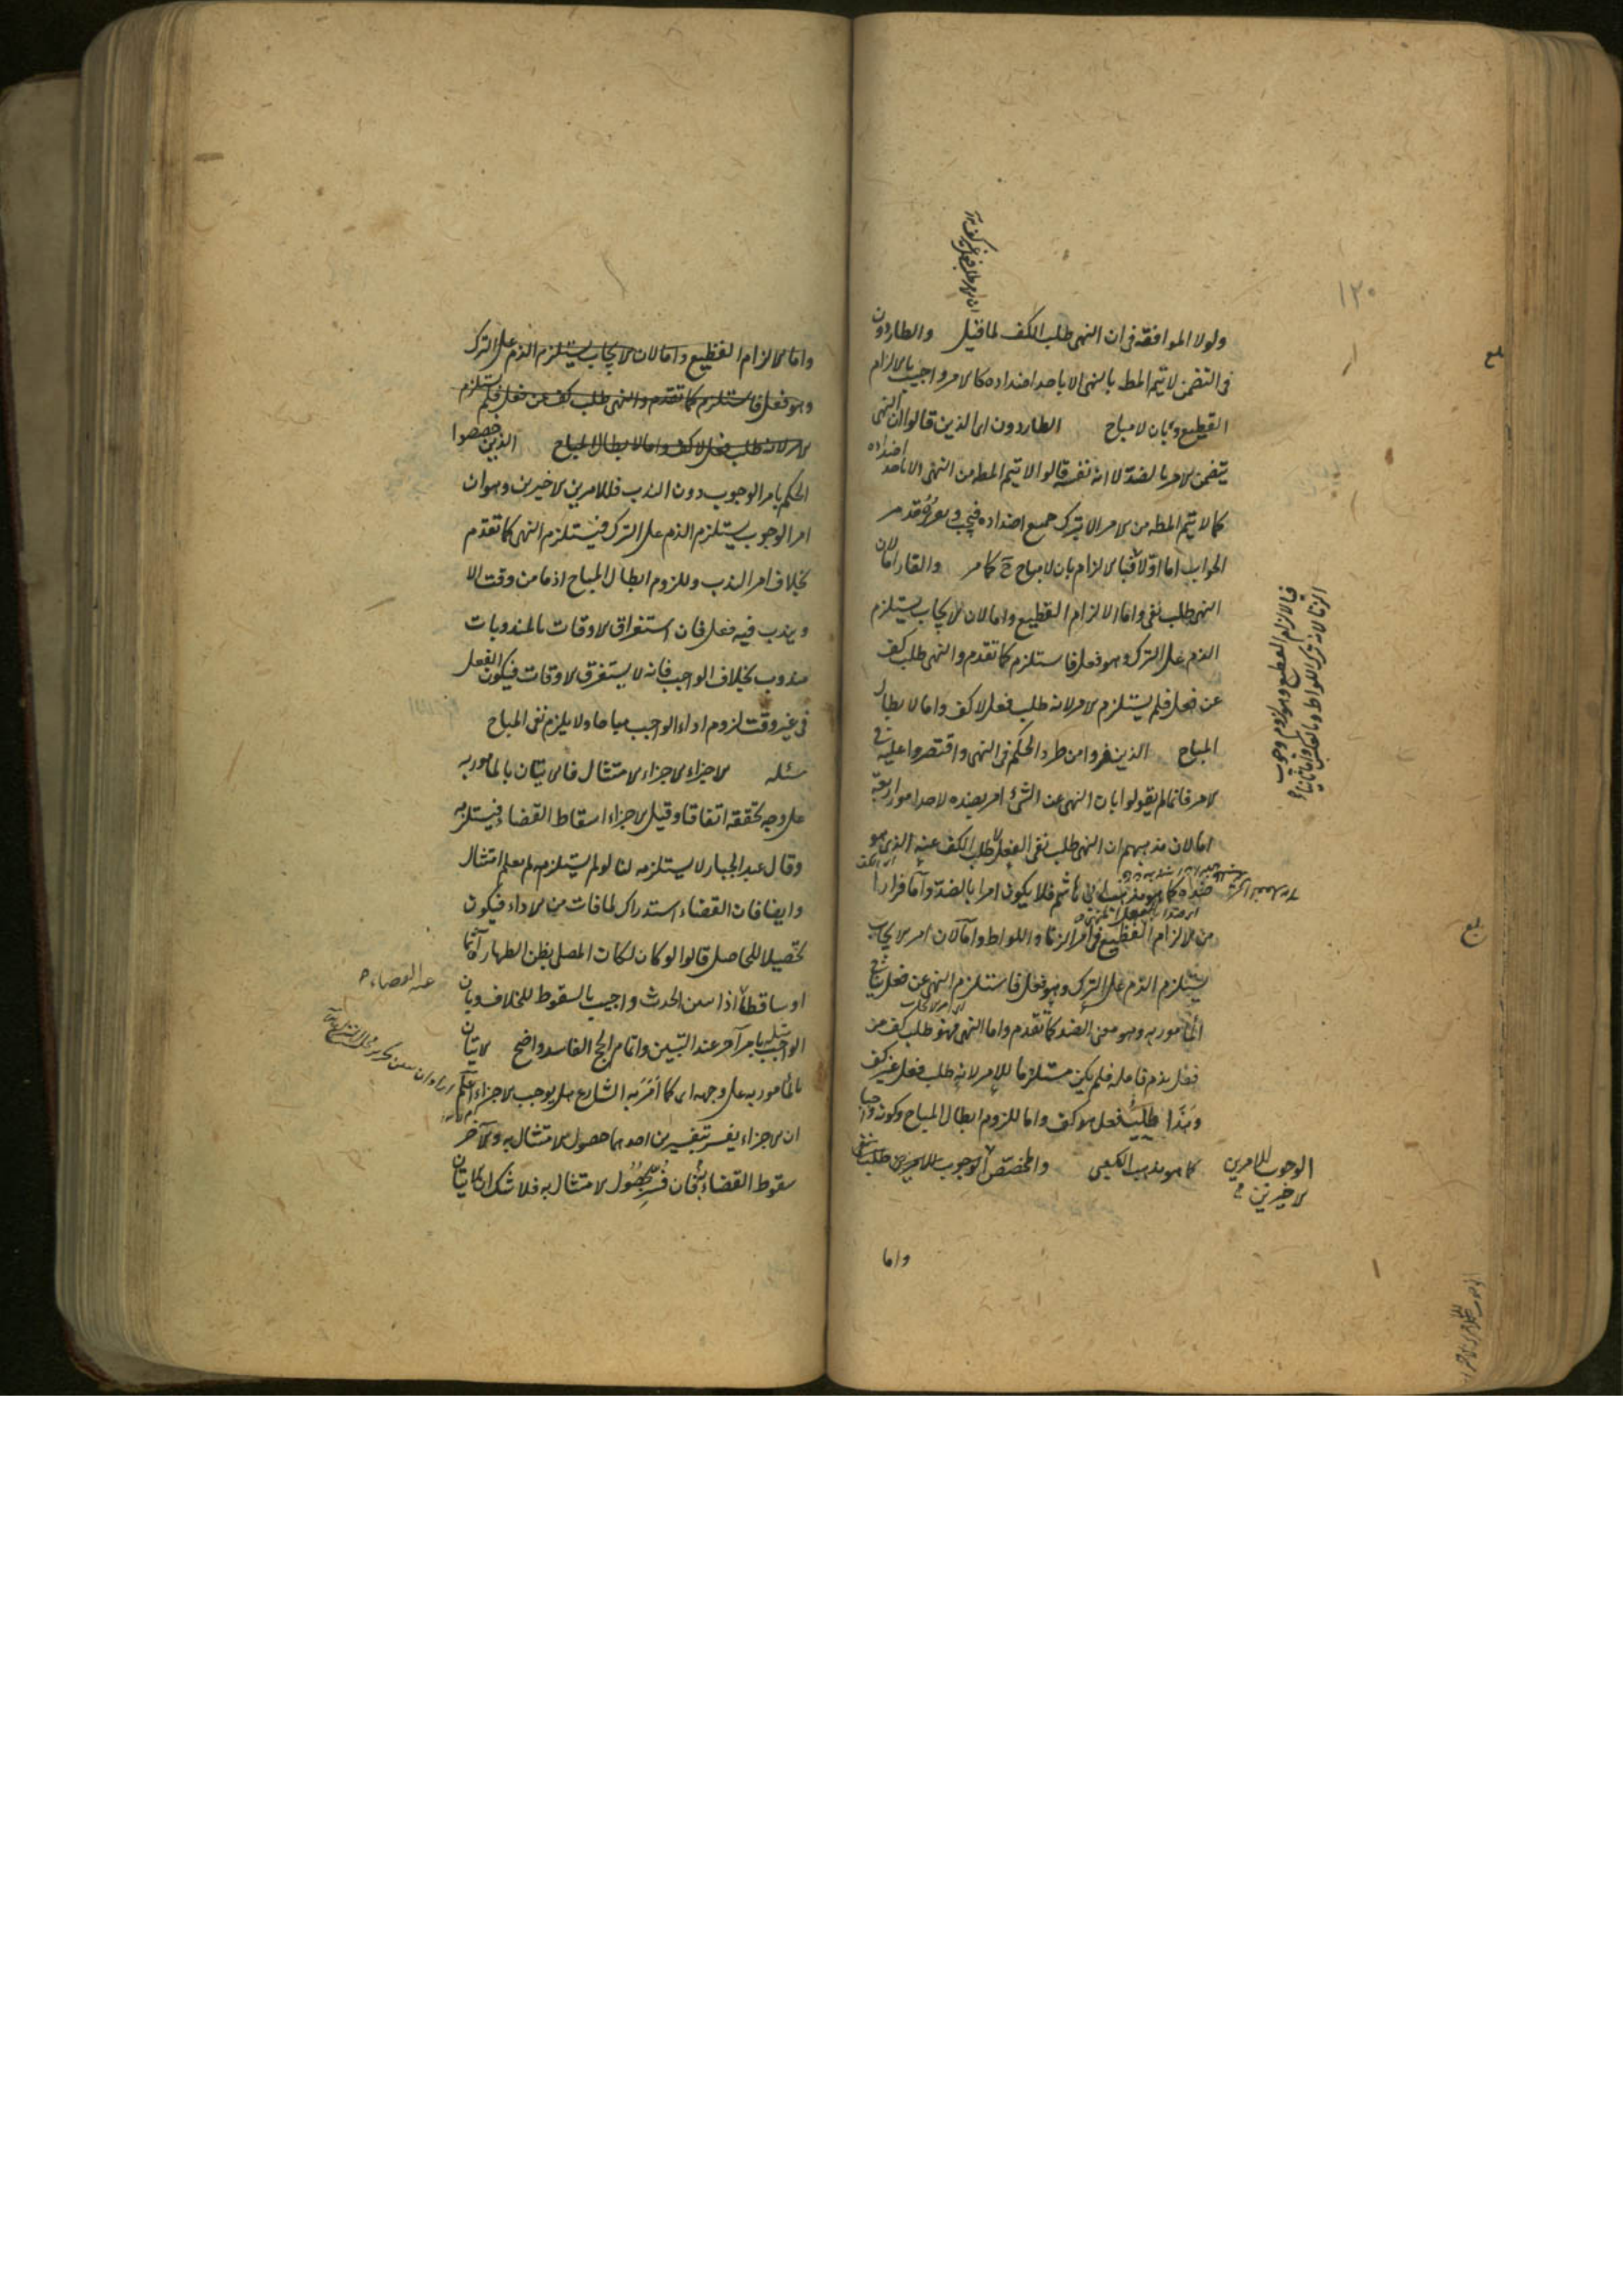 ١٢٠
ولولا الموافقة فى ان النهى طلب الكف لما قيل والطاردون
فى التضمن لا يتم المط بالنهى الا باحد اضداده كالامر واجيب بالالزام
الفظيع وبان لا مباح الطاردون اى الذين قالوا ان النهى
يتضمن الامر بالضد لا انه نفسه قالوا لا يتم المط من النهى الا باحد اضداده
كما لا يتم المط من الامر الا بترك جميع اضداده فيجب وهو
الجواب اما اولا فبالالزام بان لا مباح ح كما مر والفار اما لان
النهى طلب نفى واما الالزام الفظيع واما لان الايجاب يستلزم
الذم على الترك وهو فعل فاستلزم كما تقدم والنهى طلب كف
عن فعل فلم يستلزم الامر لانه طلب فعل لا كف واما لابطال
المباح الذين فروا من طرد الحكم فى النهى واقتصروا عليه فى
الامر فانما لم يقولوا بان النهى عن الشئ امر بضده لاحد امور اربعة
اما لان مذهبهم ان النهى طلب نفى الفعل لا طلب الكف عنه الذى هو
ضده كما هو مذهب ابى هاشم فلا يكون امرا بالضد واما فرارا
من الالزام الفظيع فى امر الزناء واللواط واما لان امر الايجاب
يستلزم الذم على الترك وهو فعل فاستلزم النهى عن فعل ينافى
المأمور به وهو معنى الضد كما تقدم واما النهى فهو طلب كف عن
فعل يذم فاعله فلم يكن مستلزما للامر لانه طلب فعل غير كف
وهذا طلب فعل هو كف واما للزوم ابطال المباح وكونه واجبا
كما هو مذهب الكعبى والمخصص الوجوب للامرين طلب نفى
الوجوب للامرين
الاخيرين
واما
واما الالزام الفظيع واما لان الايجاب يستلزم الذم على الترك
وهو فعل فاستلزم كما تقدم والنهى طلب كف عن فعل فلم يستلزم
الامر لانه طلب فعل لا كف واما لابطال المباح الذين خصصوا
الحكم بامر الوجوب دون الندب فللامرين الاخيرين وهو ان
امر الوجوب يستلزم الذم على الترك فيستلزم النهى كما تقدم
بخلاف امر الندب وللزوم ابطال المباح اذ ما من وقت الا
ويندب فيه فعل فان استغراق الاوقات بالمندوبات
مندوب بخلاف الواجب فانه لا يستغرق الاوقات فيكون الفعل
فى غير وقت لزوم اداء الواجب مباحا ولا يلزم نفى المباح
مسئلة الاجزاء الاجزاء الامتثال فالاتيان بالمأمور به
على وجهه تحققه اتفاقا وقيل الاجزاء اسقاط القضاء فيستلزمه
وقال عبد الجبار لا يستلزمه لنا لو لم يستلزمه لم يعلم امتثال
وايضا فان القضاء استدراك لما فات من الاداء فيكون
تحصيلا للحاصل قالوا لو كان لكان المصلى بظن الطهارة آثما
او ساقطا اذا تبين الحدث واجيب بالسقوط للخلاف وبان
الواجب مثله بامر آخر عند التبين واتمام الحج الفاسد واضح الاتيان
بالمأمور به على وجهه اى كما امر به الشارع هل يوجب الاجزاء اعلم
ان الاجزاء يفسر بتفسيرين احدهما حصول الامتثال به والآخر
سقوط القضاء به فان فسر بحصول الامتثال به فلا شك ان الاتيان
عنه القضاء